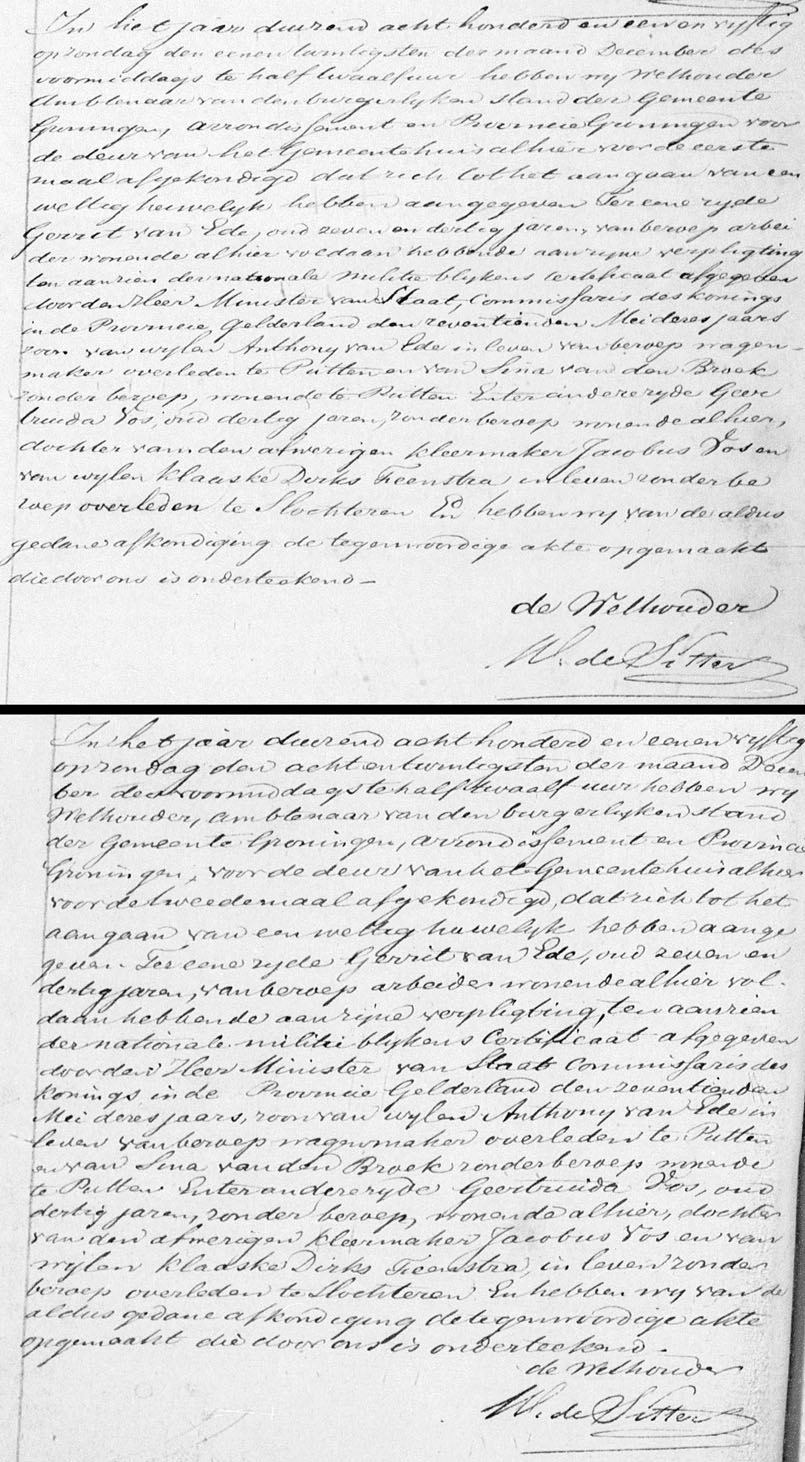 In het jaar duizend acht honderd en een en vyftig
op zondag den eenen twintigsten der maand December des
voormiddags te half twaalf uur hebben wy Wethouder
Ambtenaar van den burgerlyken stand der Gemeente
Groningen, arrondissement en Provincie Groningen voor
de deur van het Gemeentehuis alhier voor de eerste
maal afgekondigd dat zich tot het aangaan van een
wettig huwelyk hebben aangegeven Ter eene zyde
Gerrit van Ede, oud zeven en dertig jaren, van beroep arbei
der wonende alhier voldaan hebbende aan zyne verpligting
ten aanzien der nationale militie blykens Certificaat afgegeven
door den Heer Minister van Staat, Commissaris des Konings
in de Provincie Gelderland den zeventienden Mei dezes jaars
zoon van wylen Anthony van Ede in leven van beroep wagen-
maker overleden te Putten en van Sina van den Broek
zonder beroep, wonende te Putten En ter andere zyde Geer
truida Vos, oud dertig jaren, zonder beroep wonende alhier,
dochter van den afwezigen kleermaker Jacobus Vos en
van wylen Klaaske Dirks Feenstra in leven zonder be
roep overleden te Slochteren En hebben wy van de aldus
gedane afkondiging de tegenwoordige akte opgemaakt
die door ons is onderteekend –
de Wethouder
W. de Sitter
In het jaar duizend acht honderd en eenen vyftig
op zondag den acht en twintigsten der maand Decem
ber des voormiddags te half twaalf uur hebben wy
Wethouder, ambtenaar van den burgerlyken stand
der Gemeente Groningen, arrondissement en Provincie
Groningen, voor de deur van het Gemeentehuis alhier
voor de tweede maal afgekondigd, dat zich tot het
aangaan van een wettig huwelyk hebben aange
geven. Ter eene zyde Gerrit van Ede, oud zeven en
dertig jaren, van beroep arbeider wonende alhier vol-
daan hebbende aan zyne verpligting, ten aanzien
der nationale militie blykens Certificaat afgegeven
door den Heer Minister van Staat Commissaris des
Konings, in de Provincie Gelderland den zeventienden
Mei dezes jaars, zoon van wylen Anthony van Ede in
leven van beroep wagenmaker overleden te Putten
en van Sina van den Broek zonder beroep wonende
te Putten En ter andere zyde Geertruida Vos, oud
dertig jaren, zonder beroep, wonende alhier, dochter
van den afwezigen kleermaker Jacobus Vos en van
wylen Klaaske Dirks Feenstra, in leven zonder
beroep overleden te Slochteren En hebben wy van de
aldus gedane afkondiging de tegenwoordige akte
opgemaakt die door ons is onderteekend –
de Wethouder
W. de Sitter